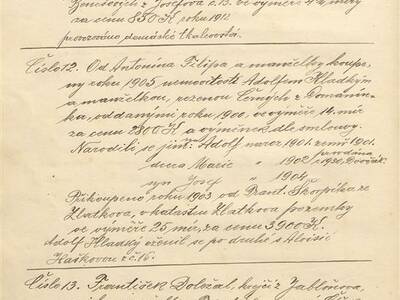 Benešových z Josefova č.13. ve výměře 42 míry
za cenu 850 K roku 1912
provozováno domácké tkalcovství.
Číslo 12. Od Antonína Filipa a manželky koupe-
ny roku 1905, nemovitosti Adolfem Hladkým
a manželkou, rozenou Černých z Domanín-
ka, oddanými roku 1900, ve výměře 14 mír
za cenu 2800 K a výminek dle smlouvy.
Narodili se jim: Adolf naroz 1901. zemř 1901.
dcera Marie " 1902
syn Josef " 1904
Přikoupeno roku 1903 od Frant. Skočpíka ze
Zlatkova, v katastru Zlatkova pozemky
ve výměře 25 mír, za cenu 3900 K.
Adolf Hladký oženil se po druhé s Aloisií
Haškovou z č. 16.
Číslo 13. František Doležal, krejčí z Jabloňova,